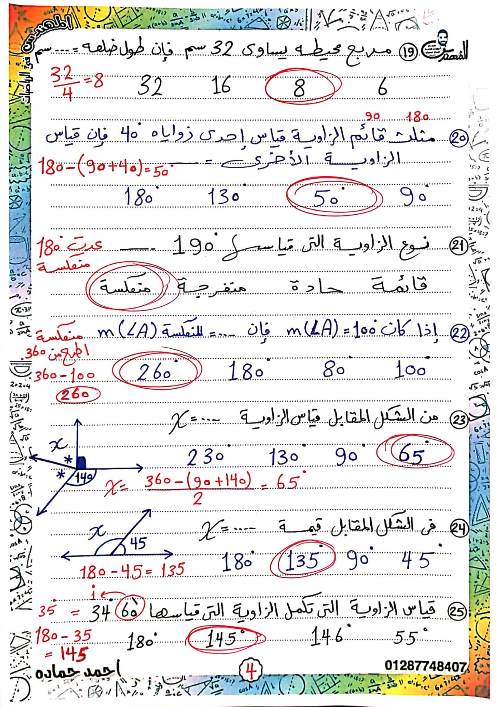 المهندس فى الرياضيات
المهندس
(19) مربع محيطه يساوى 32 سم فإن طول ضلعه = .... سم
32/4 = 8
6 8 16 32
(20) مثلث قائم الزاوية قياس إحدى زواياه 40° فإن قياس
90 180
الزاوية الأخرى = ....
180 - (90+40) = 50°
90° 50° 130° 180°
(21) نوع الزاوية التى قياسها 190° ....
عدت 180°
منعكسة
قائمة حادة منفرجة منعكسة
(22) إذا كان m(∠A) = 100° فإن .... = m(∠A) المنعكسة
منعكسة
اطرح من 360
360 - 100
260
100° 80° 180° 260°
(23) من الشكل المقابل قياس الزاوية x = ....
65° 90° 130° 230°
x
*
*
140
x = (360 - (90+140))/2 = 65°
(24) فى الشكل المقابل قيمة x = ....
x
45
180 - 45 = 135
45° 90° 135° 180°
(25) قياس الزاوية التى تكمل الزاوية التى قياسها 34° 60' = 35°
180 - 35
= 145
55° 146° 145° 180°
احمد حماده
4
01287748407